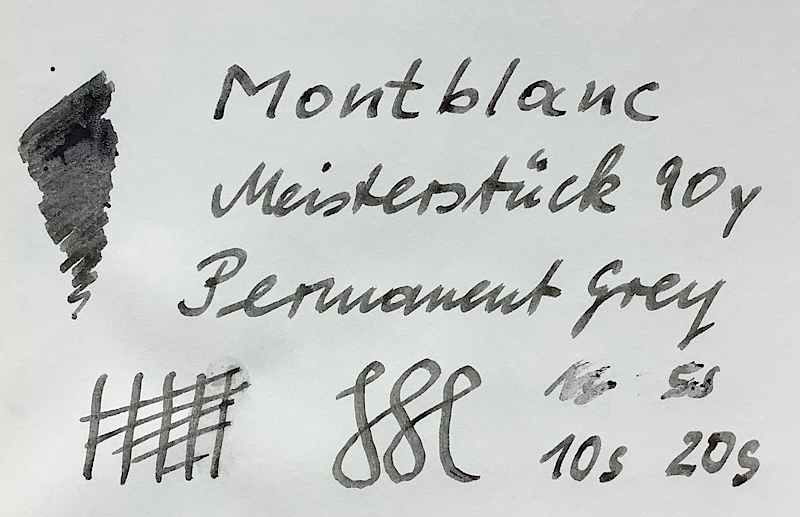 Montblanc
Meisterstück 90y
Permanent Grey
1s 5s
10s 20s